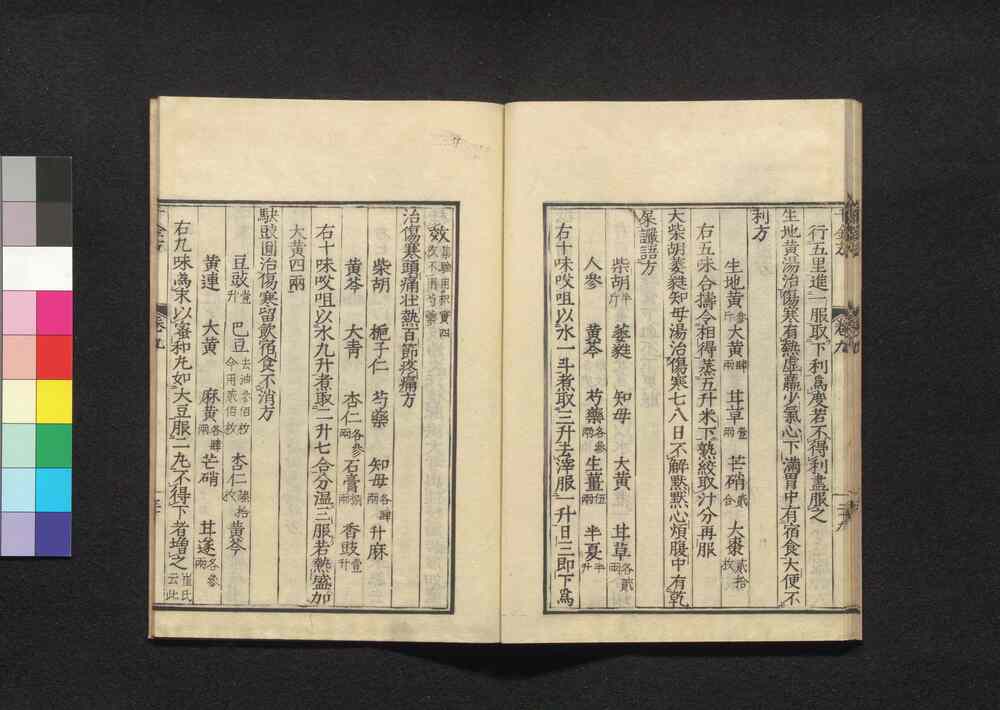 行五里進一服取下利為度若不得利盡服之
生地黃湯治傷寒有熱虛羸少氣心下滿胃中有宿食大便不
利方
生地黃叁斤 大黃肆兩 甘草壹兩 芒硝貳合 大棗貳拾枚
右五味合擣令相得蒸五升米下熟絞取汁分再服
大柴胡萎蕤知母湯治傷寒七八日不解默默心煩腹中有乾
屎讝語方
柴胡半斤 萎蕤 知母 大黃 甘草各貳兩
人參 黃芩 芍藥各參兩 生薑伍兩 半夏半升
右十味㕮咀以水一斗煮取三升去滓服一升日三即下為
效集驗用枳實四枚不用芍藥
治傷寒頭痛壯熱百節疼痛方
柴胡 梔子仁 芍藥 知母各肆兩 升麻
黃芩 大青 杏仁各參兩 石膏捌兩 香豉壹升
右十味㕮咀以水九升煮取二升七合分溫三服若熱盛加
大黃四兩
駃豉圓治傷寒留飲宿食不消方
豆豉壹升 巴豆去油參佰枚今用貳佰枚 杏仁陸拾枚 黃芩
黃連 大黃 麻黃各肆兩 芒硝 甘遂各參兩
右九味為末以蜜和丸如大豆服二丸不得下者增之崔氏云此